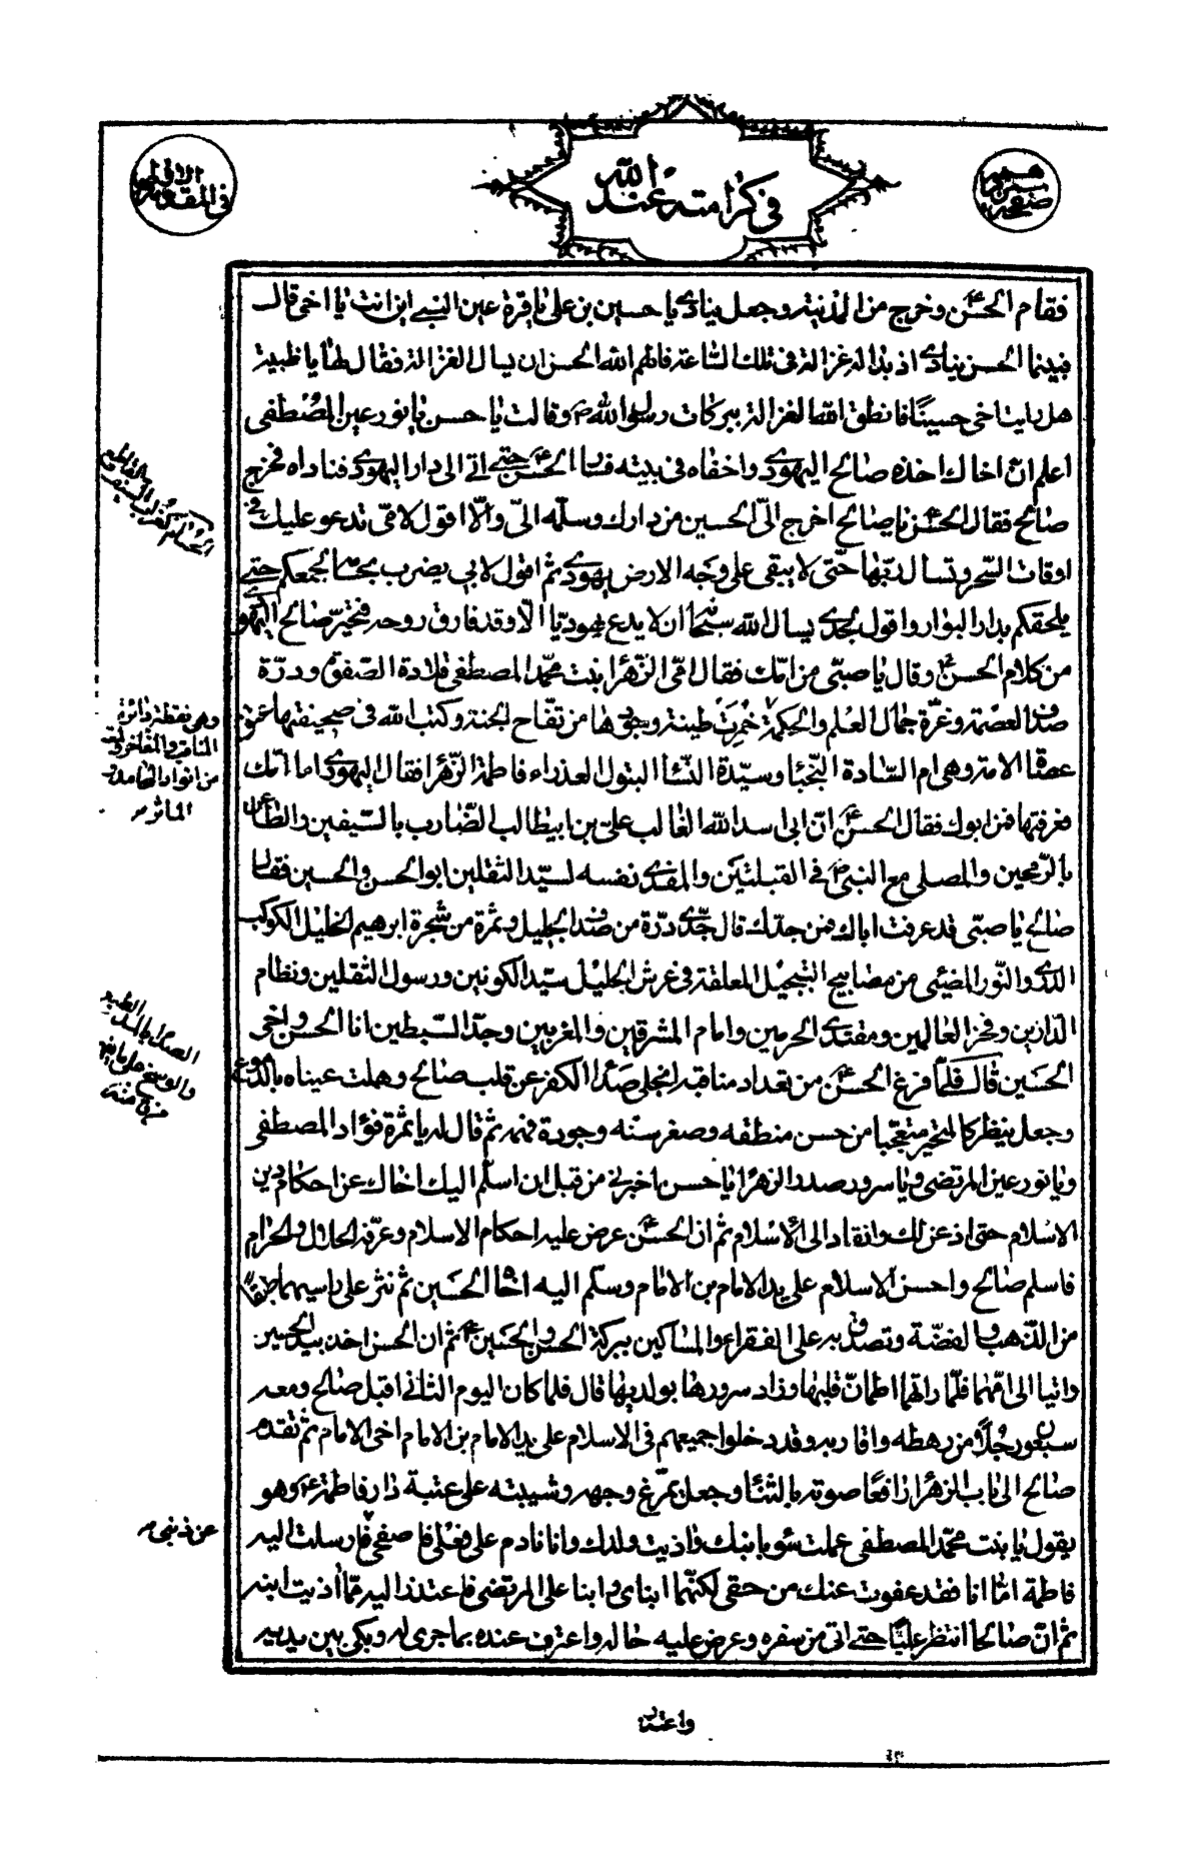 في كرامته عند الله
فقام الحسنؑ وخرج من المدينة وجعل ينادي يا حسين بن علي يا قرة عين النبي اين انت يا اخي قال
فبينما الحسن ينادي اذ بدا له غزالة في تلك الساعة فالهم الله الحسن ان يسال الغزالة فقال لها يا ظبية
هل رايت اخي حسينًا فانطق الله الغزالة ببركات رسول اللهؐ وقالت يا حسن يا نور عين المصطفى
اعلم انّ اخاك اخذه صالح اليهودي واخفاه في بيته فسار الحسنؑ حتى اتى الى دار اليهودي فناداه فخرج
صالح فقال الحسنؑ يا صالح اخرج اليّ الحسين من دارك وسلّمه اليّ والّا اقول لامّي تدعو عليك في
اوقات السّحر وتسال ربّها حتّى لا يبقى على وجه الارض يهودي ثم اقول لابي يضرب بحسامه جمعكم حتى
يلحقكم بدار البوار واقول لجدي يسال الله سبحانه ان لا يدع يهوديّا الّا وقد فارق روحه فتحيّر صالح اليهودي
من كلام الحسنؑ وقال يا صبيّ من امّك فقال امّي الزّهراء بنت محمّد المصطفى قلادة الصّفوة ودرّة
صدف العصمة وغرّة جمال العلم والحكمة خمرت طينة وجودها من تفّاح الجنة وكتب الله في صحيفتها عتق
عصاة الامة وهي ام السّادة النّجباء وسيّدة النّساء البتول العذراء فاطمة الزّهراء فقال اليهودي اما امّك
فعرفتها فمن ابوك فقال الحسنؑ انّ ابي اسد الله الغالب عليّ بن ابيطالب الضّارب بالسّيفين والطّاعن
بالرّمحين والمصلي مع النبيؐ في القبلتين والمفدي نفسه لسيّد الثقلين ابو الحسن والحسين فقال
صالح يا صبّي قد عرفت اباك فمن جدّك قال جدّي درّة من صدف الجليل وثمرة من شجرة ابرهيم الخليل الكوكب
الدري والنّور المضيء من مصابيح التبجيل المعلقة في عرش الجليل سيّد الكونين ورسول الثقلين ونظام
الدّارين وفخر العالمين ومقتدى الحرمين وامام المشرقين والمغربين وجدّ السّبطين انا الحسن واخي
الحسين قال فلمّا فرغ الحسنؑ من تعداد مناقبه انجلى صداء الكفر عن قلب صالح وهملت عيناه بالدّموع
وجعل ينظر كالمتحيّر متعجّبا من حسن منطقه وصغر سنّه وجودة فهمه ثم قال له يا ثمرة فؤاد المصطفى
ويا نور عين المرتضى ويا سرور صدر الزهراء يا حسن اخبرني من قبل ان اسلّم اليك اخاك عن احكام دين
الاسلام حتى اذعن لك وانقاد الى الاسلام ثم ان الحسنؑ عرض عليه احكام الاسلام وعرّفه الحلال والحرام
فاسلم صالح واحسن الاسلام على يد الامام بن الامام وسلّم اليه اخاه الحسين ثم نثر على راسيهما طبقًا
من الذّهب والفضّة وتصدّق به على الفقراء والمساكين ببركة الحسن والحسينؑ ثم ان الحسن اخذ بيد الحسين
واتيا الى امّهما فلمّا راتهما اطمانّ قلبها وزاد سرورها بولديها قال فلما كان اليوم الثاني اقبل صالح ومعه
سبعون رجلًا من رهطه واقاربه وقد دخلوا جميعهم في الاسلام على يد الامام بن الامام اخي الامام ثم تقدم
صالح الى باب الزهراء رافعًا صوته بالثناء وجعل يمرّغ وجهه وشيبته على عتبة دار فاطمةؑ وهو
يقول يا بنت محمّد المصطفى عملت سوء بابنك واذيت ولدك وانا نادم على فعلي فاصفحي فارسلت اليه
فاطمة امّا انا فقد عفوت عنك من حقي لكنّهما ابناي وابنا علي المرتضى فاعتذر اليه ممّا اذيت ابنه
ثم انّ صالحًا انتظر عليًّا حتى اتى من سفره وعرض عليه حاله واعترف عنده بما جرى له وبكى بين يديه
وهي نقطة دائرة
المناقب والمفاخر
من انوار المحامد و
المآثر
عن ذنبي
واعتذر